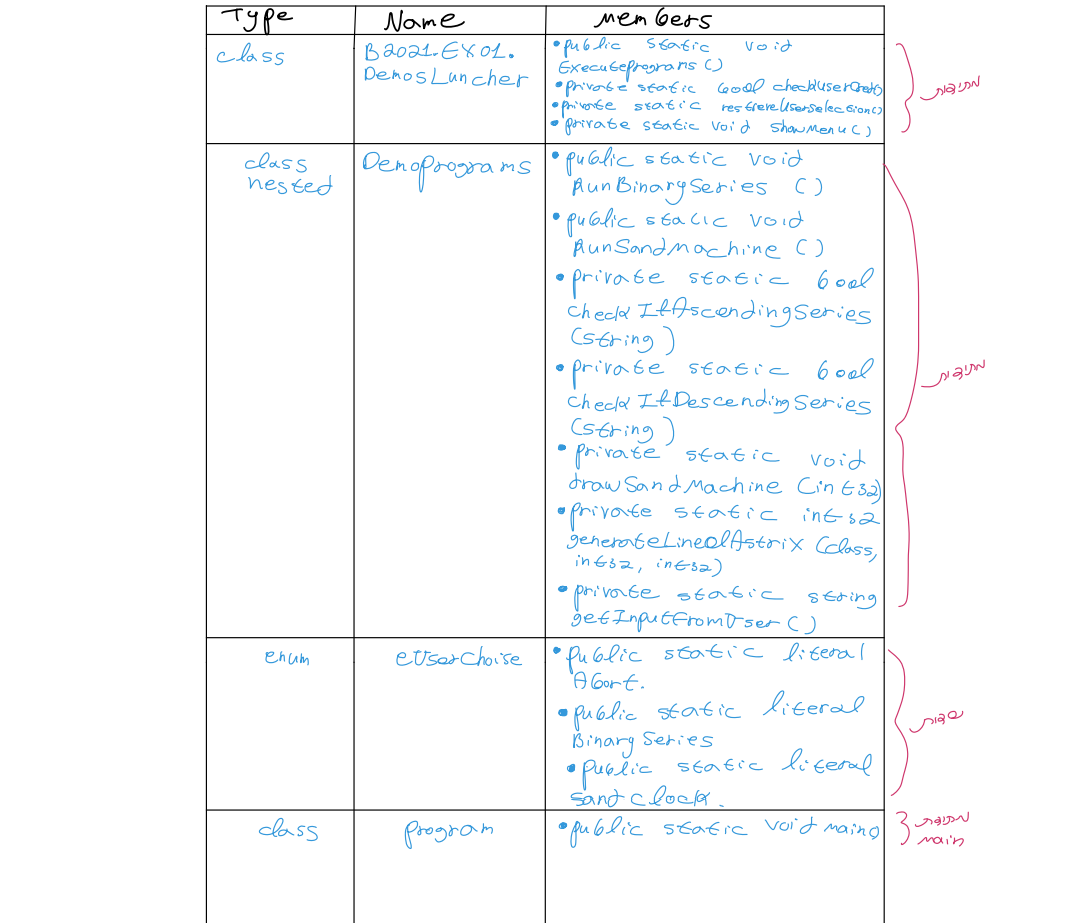 Type Name Members
class B2021.EX01. • public static void
DemosLuncher ExecutePrograms ()
• private static bool
• private static
• private static void showMenu()
מתודות
class DemoPrograms • public static void
nested RunBinarySeries ()
• public static void
RunSandMachine ()
• private static bool
check IfAscendingSeries
(string)
• private static bool
check IfDescending Series
(string)
• private static void
drawSandMachine (int32)
• private static int32
generateLineOfAstrix (class,
int32, int32)
• private static string
getInputFromUser ()
מתודות
enum eUserChoise • public static literal
Abort.
• public static literal
Binary Series
• public static literal
Sand Clock.
שדות
class program • public static void main()
מתודת
main